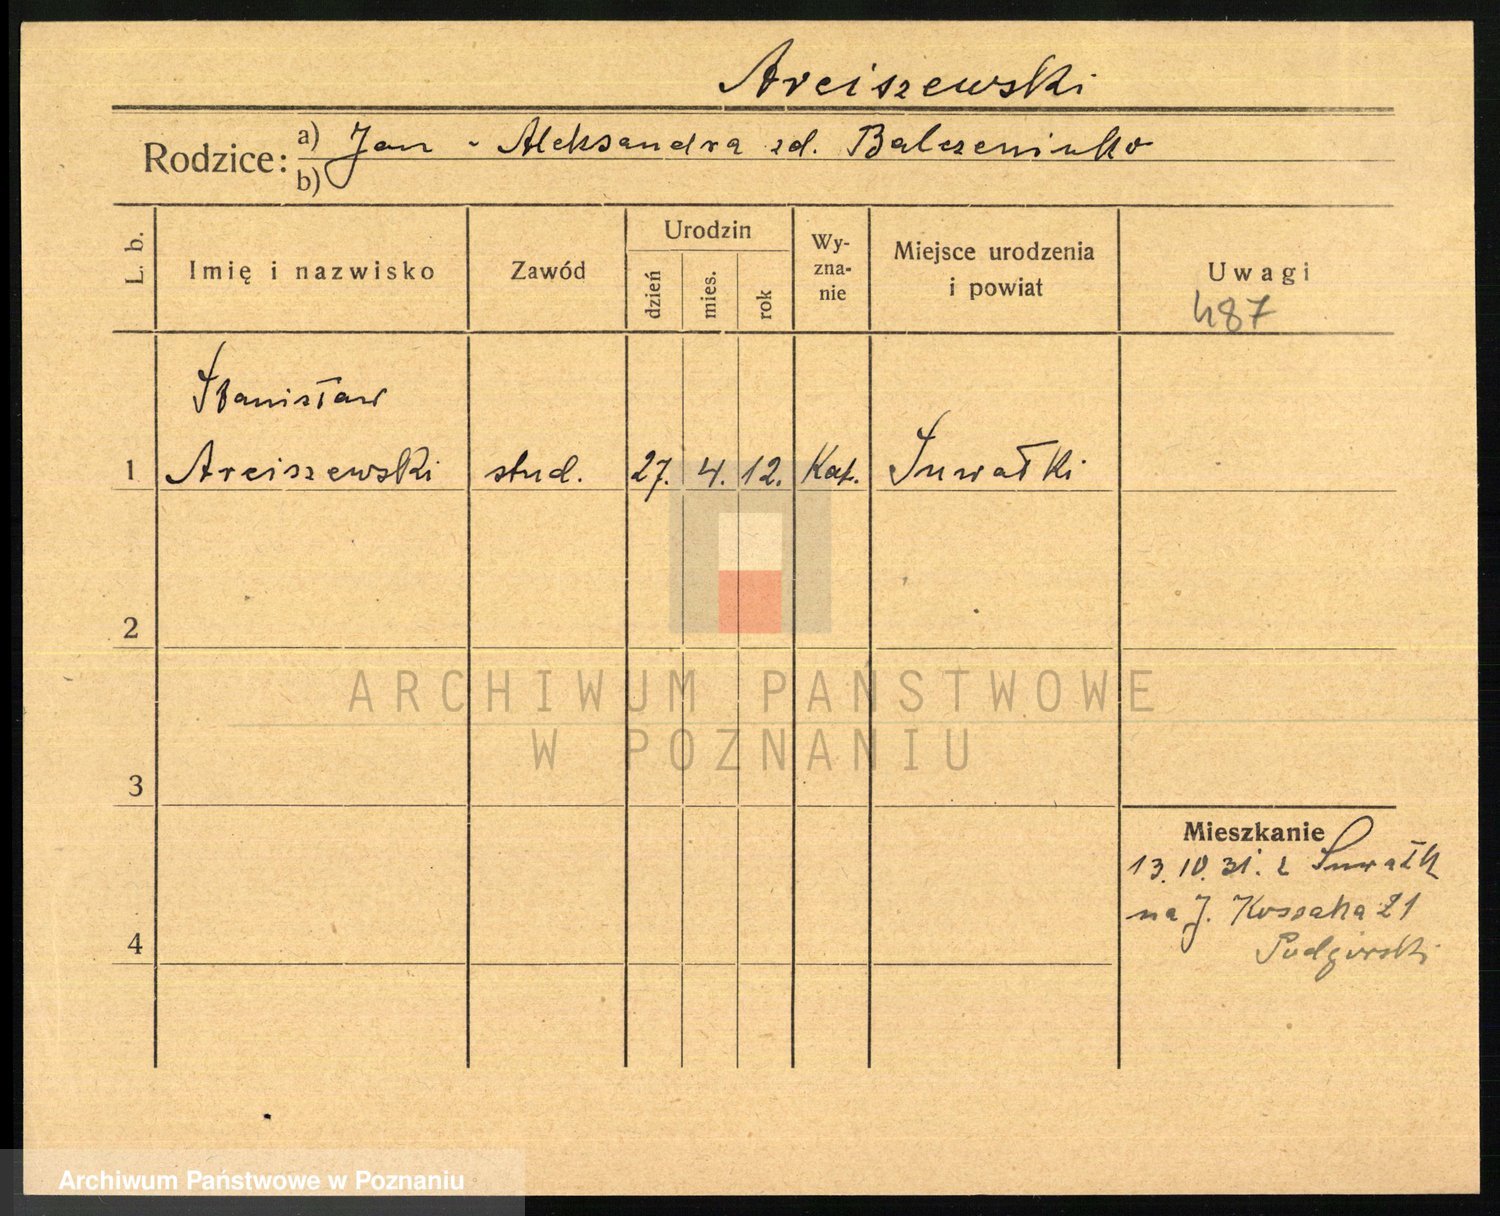 Arciszewski
Rodzice: a) Jan - Aleksandra zd. Balczeniuko
b)
L. b. Imię i nazwisko Zawód Urodzin dzień mies. rok Wy-zna-nie Miejsce urodzenia i powiat Uwagi
487
Stanisław
1 Arciszewski stud. 27. 4. 12. Kat. Suwałki
2
ARCHIWUM PAŃSTWOWE
W POZNANIU
3
Mieszkanie
13.10.31. z Suwałk
na J. Kossaka 21
4
Podgórski
Archiwum Państwowe w Poznaniu